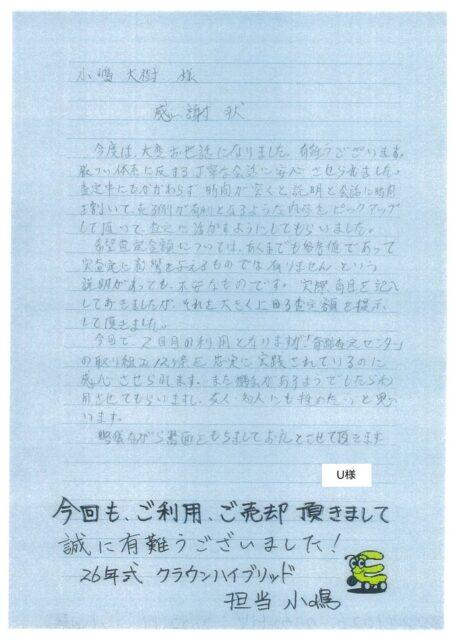 小嶋 大樹 様
感謝状
今度は、大変お世話になりました。有難うございます。
厳つい体系に反する丁寧な会話に安心させられました。
査定中にもかかわらず 時間が空くと説明と会話に時間
を割いて、売る側が有利となるような内容をピックアップ
して頂いて、査定に活かすようにしてもらいました。
希望査定金額については、あくまでも参考値であって
実査定に影響を与えるものでは有りません という
説明があっても、不安なものです。実際 毎回 記入
しておきましたが、それを大きく上回る査定額を提示
して頂きました。
今回で、2回目の利用となりますが
の取り組み12ヶ条を忠実に実践されているのに
感心させられます。また機会があるようでしたら利
用させてもらいますし、友人・知人にも推めたいと思
います。
略儀ながら書面をもちましてお礼とさせて頂きます
U様
今回も、ご利用、ご売却 頂きまして
誠に有難うございました！
26年式 クラウンハイブリッド
担当 小嶋